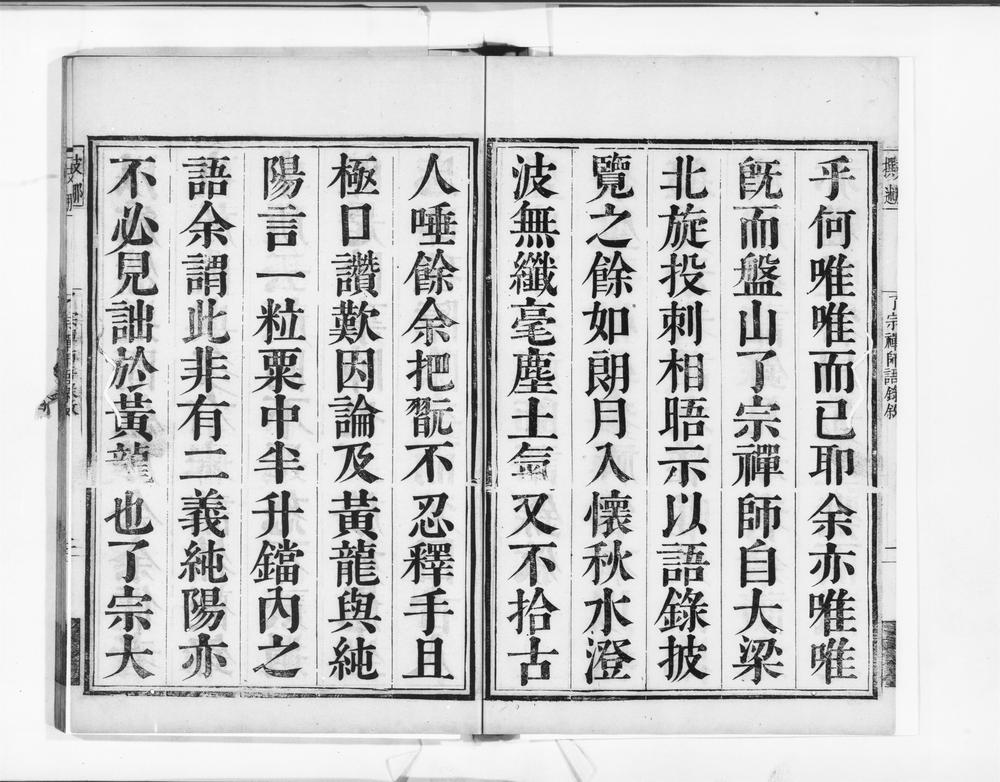 乎何唯唯而已耶余亦唯唯
旣而盤山了宗禪師自大梁
北旋投刺相晤示以語錄披
覽之餘如朗月入懷秋水澄
波無纖毫塵土氣又不拾古
人唾餘余把翫不忍釋手且
極口讚歎因論及黃龍與純
陽言一粒粟中半升鐺內之
語余謂此非有二義純陽亦
不必見詘於黃龍也了宗大
了宗禪師語錄敘